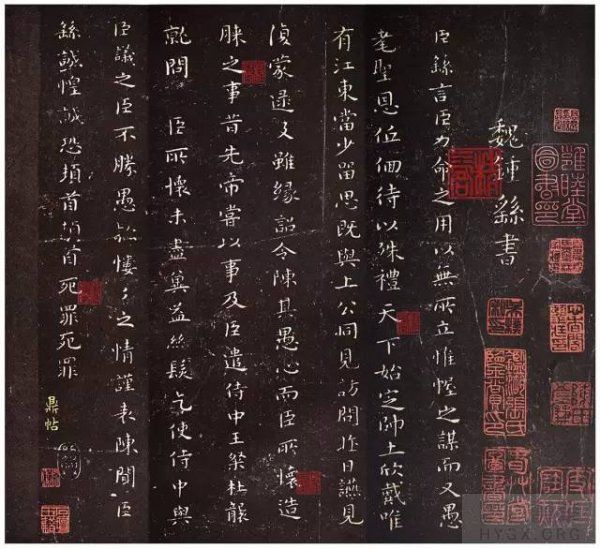 魏鍾繇書
臣繇言臣力命之用以無所立惟幄之謀而又愚
耄聖恩低佪待以殊禮天下始定帥土欣戴唯
有江東當少留思既與上公同見訪問昨日讌見
湏蒙逮及雖緣詔令陳其愚心而臣所懷造
膝之事昔先帝嘗以事及臣遣侍中王粲杜襲
就問臣所懷未盡冀益絲髮乞使侍中與
臣議之臣不勝愚款慺々之情謹表陳聞臣
繇誠惶誠恐頓首頓首死罪死罪
鼎帖
HYGX.ORG